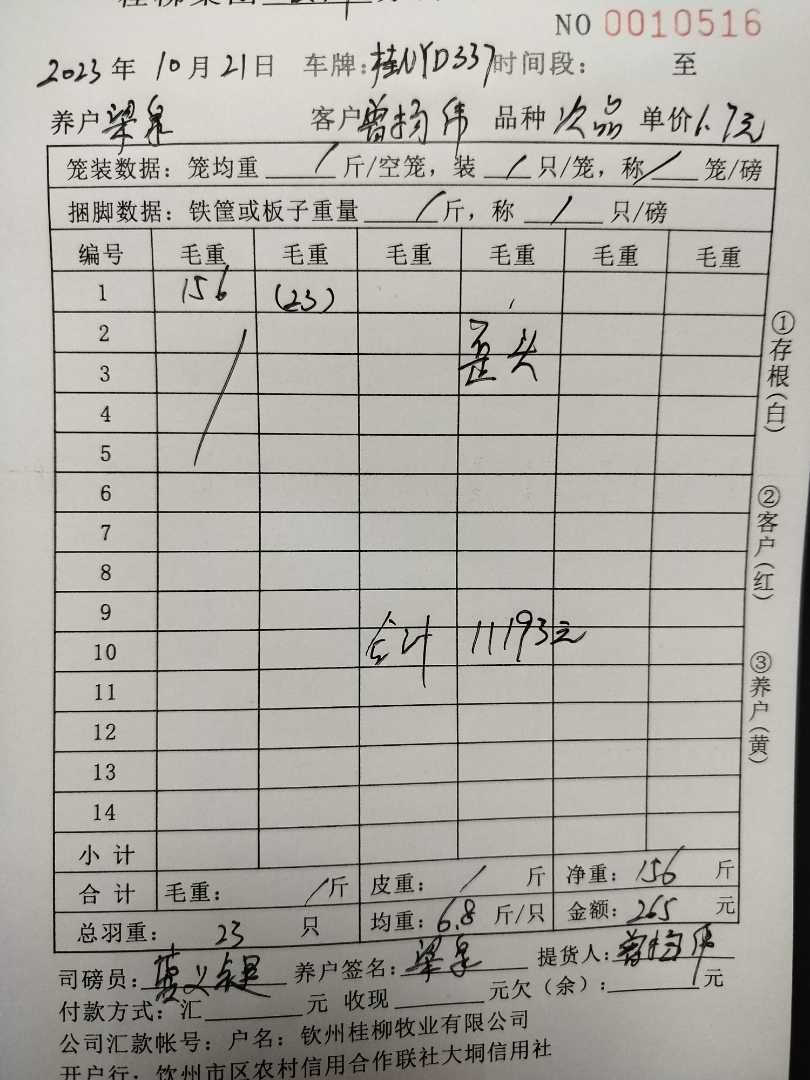 NO 0010516
2023年10月21日 车牌:桂NYD337时间段: 至
养户梁泉 客户曾扬伟 品种次品 单价1.7元
笼装数据: 笼均重/斤/空笼, 装/只/笼, 称/笼/磅
捆脚数据: 铁筐或板子重量/斤, 称/只/磅
编号 毛重 毛重 毛重 毛重 毛重 毛重
1 156 (23)
2
歪头
3
4
5
6
7
8
9
10 合计 11193元
11
12
13
14
小计
合计 毛重: /斤 皮重: /斤 净重: 156斤
总羽重: 23只 均重: 6.8斤/只 金额: 265元
司磅员: 养户签名: 梁泉 提货人: 曾扬伟
付款方式: 汇 元 收现 元欠(余): 元
公司汇款帐号: 户名: 钦州桂柳牧业有限公司
开户行: 钦州市区农村信用合作联社大垌信用社
①存根(白)
②客户(红)
③养户(黄)